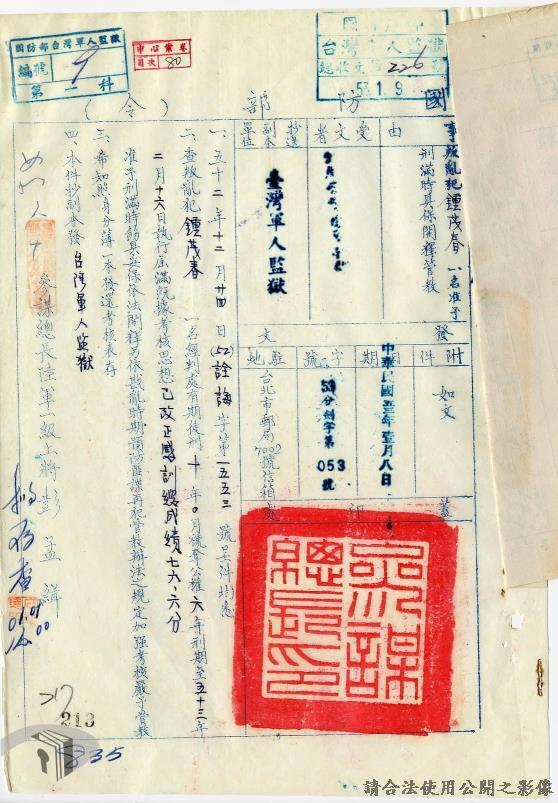 國防部台灣軍人監獄
編號
第一科
中心業卷
目次 80
53 1 9
國防部
(令)
事由
叛亂犯鍾茂春一名准予
刑滿時具保開釋管教
受文者
抄送副本單位
臺灣軍人監獄
附件
如文
發文
日期
中華民國五三年壹月八日
字號
53分刻字第053號
駐地
台北市郵局7002號信箱
蓋印
參謀總長之印
一、五十二年十二月廿四日(52)詮誨字第一五五三號呈件均悉
二、查叛亂犯鍾茂春一名經判處有期徒刑十年0月褫奪公權六年刑期至五十三年
二月十六日執行屆滿既據考核思想已改正感訓總成績七六.六分
准予刑滿時飭具妥保依法開釋另依戡亂時期預防匪諜再犯管教辦法之規定加強考核嚴予管教
三、希知照身分簿一本發還考核表存
四、本件抄副本發台灣軍人監獄
參謀總長陸軍一級上將彭孟緝
217
213
835
請合法使用公開之影像